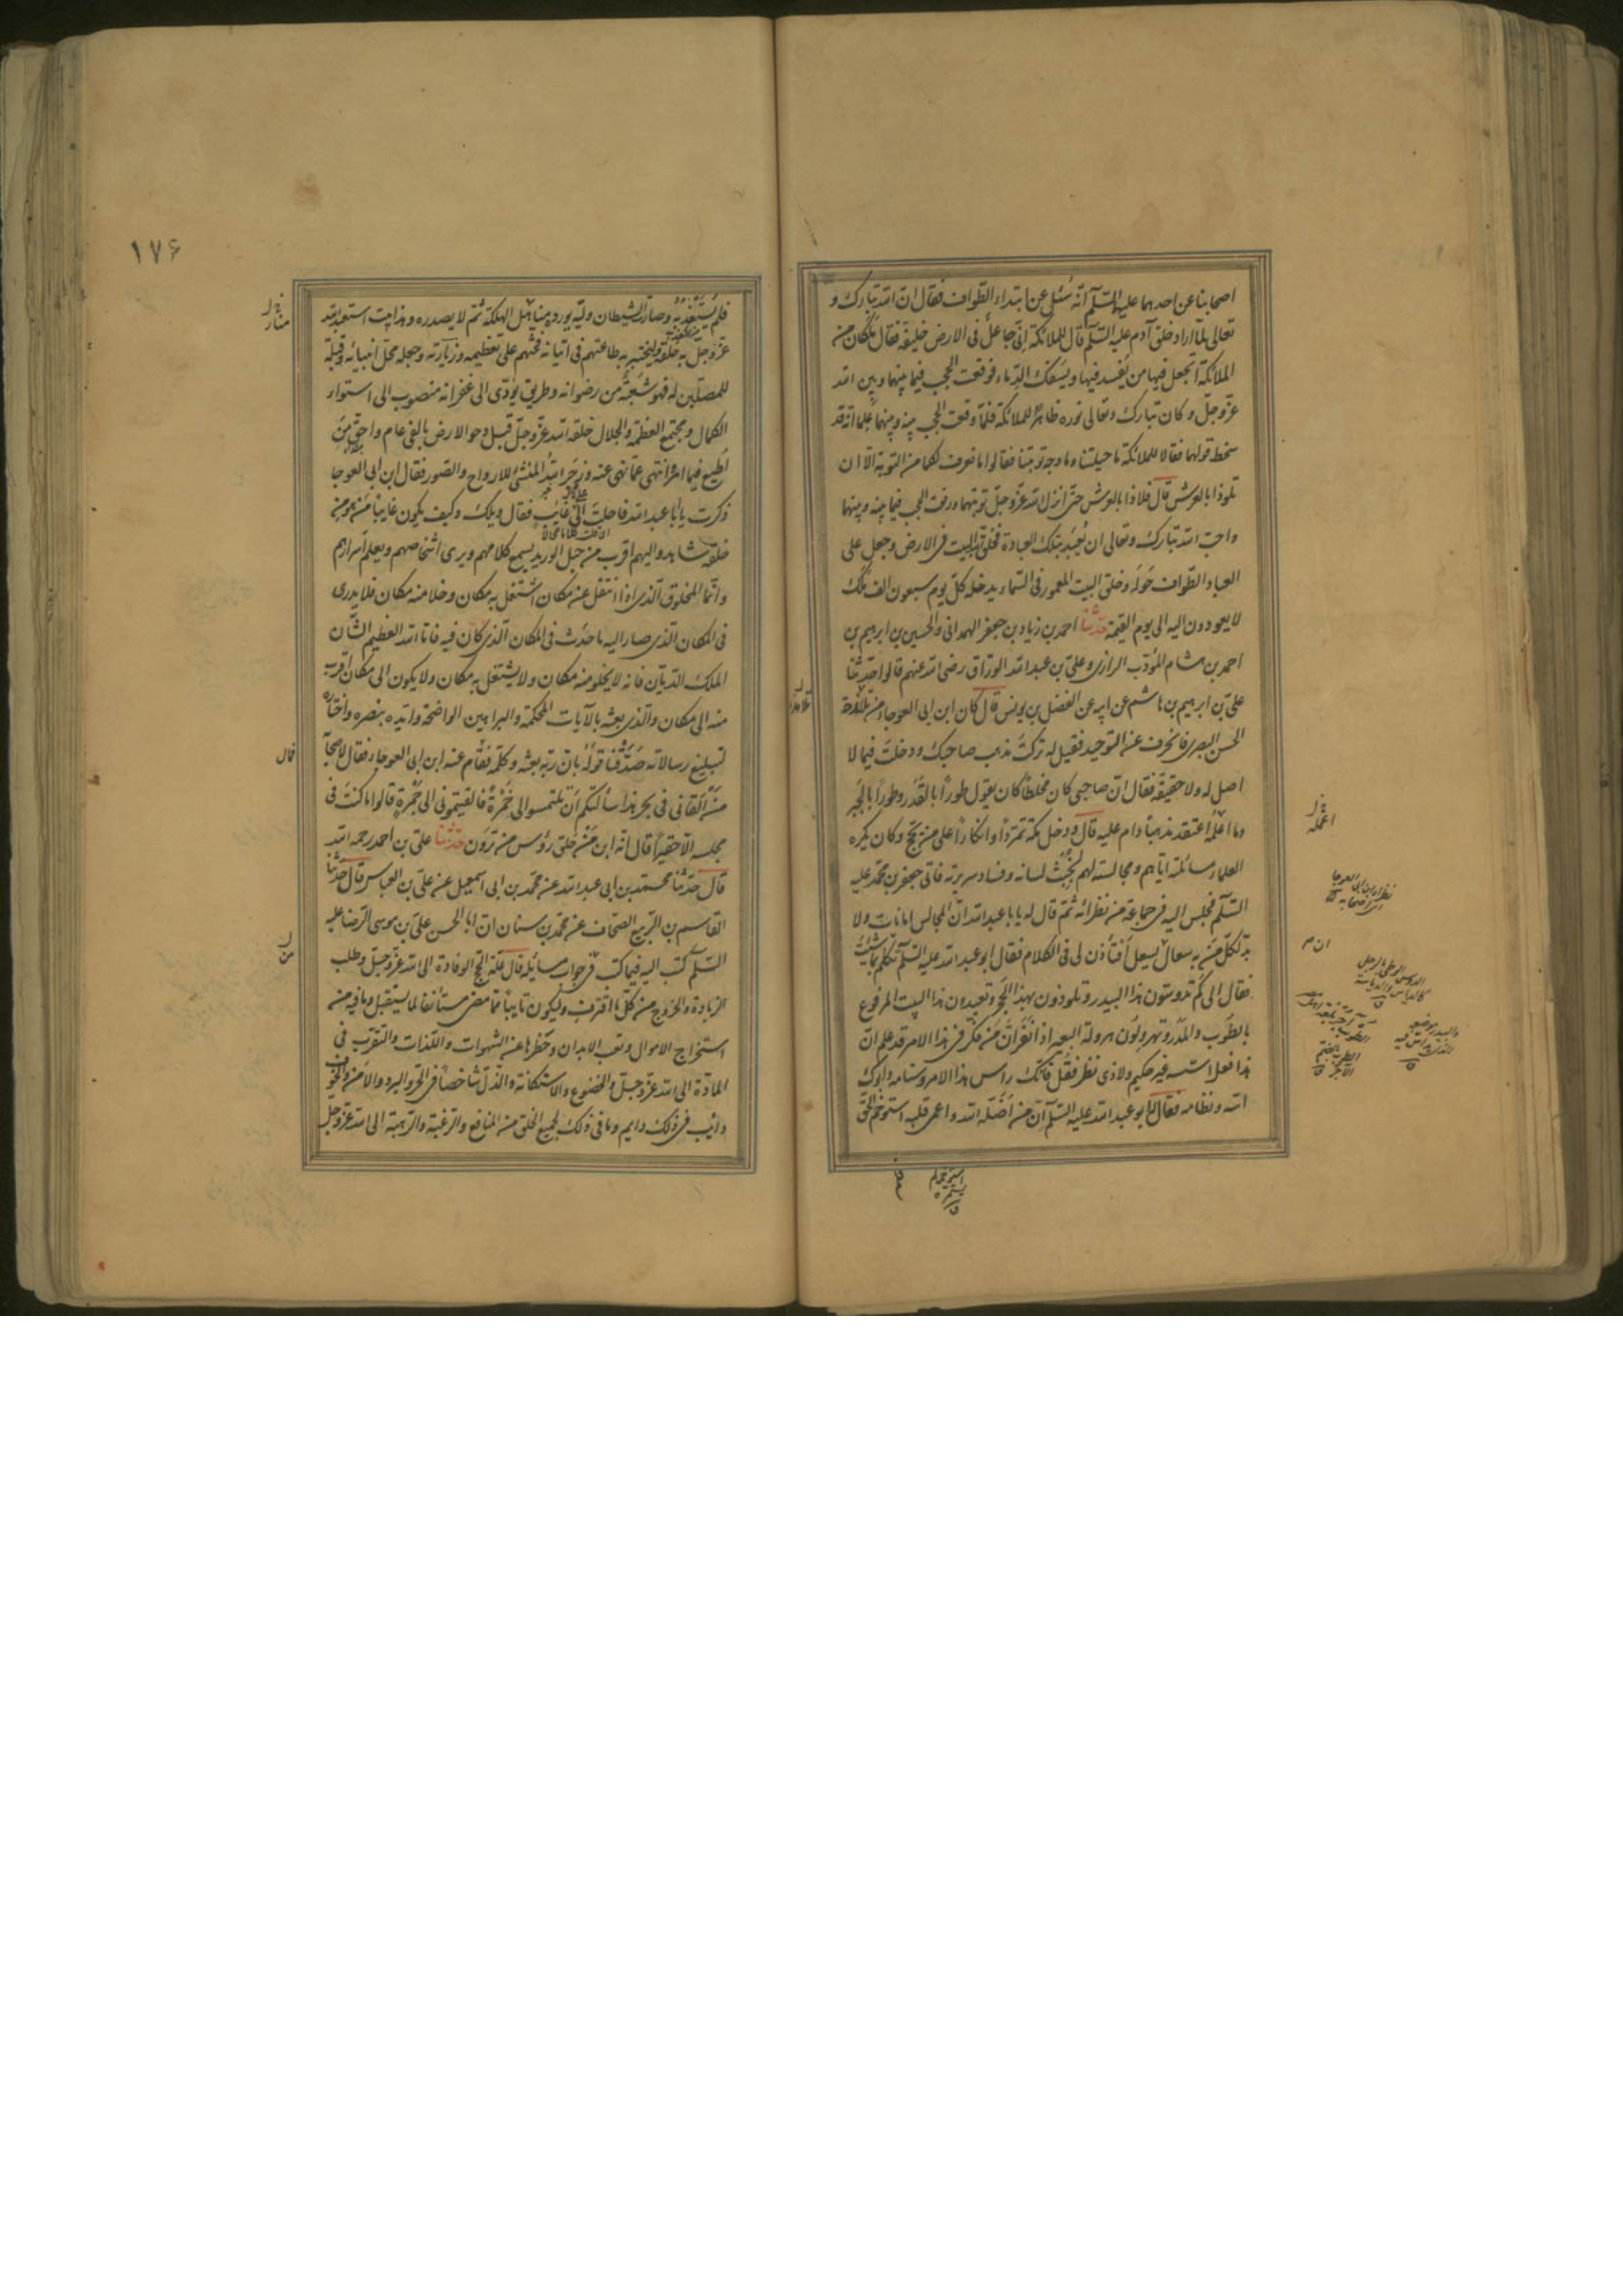 اصحابنا عن احدهما عليهما السّلم انّه سُئل عن ابتداء الطّواف فقال انّ الله تبارك و
تعالى لمّا اراد خلق آدم عليه السّلم قال للملائكة انّى جاعلٌ فى الارض خليفة فقال ملكان من
الملائكة أتجعل فيها من يُفسد فيها ويسفك الدّماء فوقعت الحجب فيما بينهما وبين الله
عزّ وجلّ وكان تبارك وتعالى نوره ظاهرًا للملائكة فلمّا وقعت الحجب بينه وبينهما علما انّه قد
سخط قولهما فقالا للملائكة ما حيلتنا وما وجه توبتنا فقالوا ما نعرف لكما من التوبة الّا ان
تلوذا بالعرش قال فلاذا بالعرش حتى انزل الله عزّ وجلّ توبتهما ورفعت الحجب فيما بينه وبينهما
واحبّ الله تبارك وتعالى ان يُعبد بتلك العبادة فخلق الله البيت فى الارض وجعل على
العباد الطّواف حَولَه وخلق البيت المعمور فى السّماء يدخله كلّ يوم سبعون الف ملك
لا يعودون اليه الى يوم القيمة حدّثنا احمد بن زياد بن جعفر الهمدانى والحسين بن ابرهيم بن
احمد بن هشام المؤدّب الرازى وعلىّ بن عبد الله الورّاق رضى الله عنهم قالوا حدّثنا
علىّ بن ابرهيم بن هاشم عن ابيه عن الفضل بن يونس قال كان ابن ابى العوجاء من تلامذة
الحسن البصرى فانحرف عن التوحيد فقيل له تركتَ مذهب صاحبك ودخلتَ فيما لا
اصل له ولا حقيقة فقال انّ صاحبى كان مخلطًا كان يقول طورًا بالقَدَر وطورًا بالجَبر
وما اعلمُه اعتقد مذهبًا دام عليه قال ودخل مكّة تمرّدًا وانكارًا على من يحجّ وكان يكره
العلماء مسائلته ايّاهم ومجالسته لهم لخبث لسانه وفساد سريرته فاتى جعفر بن محمّد عليه
السّلم فجلس اليه فى جماعة من نظرائه ثمّ قال له يا با عبد الله انّ المجالس امانات ولا
بدّ لكلّ مَن به سعال ان يسعل أفتأذن لى فى الكلام فقال ابو عبد الله عليه السّلم تكلّم بما شئت
فقال الى كم تدوسون هذا البيدر وتلوذون بهذا الحجر وتعبدون هذا البيت المرفوع
بالطوب والمَدَر وتهرولون هرولة البعير اذا نَفَر انّ مَن فكّر فى هذا الامر قد علم انّ
هذا فعل اسّسه غير حكيم ولا ذى نظر فقل فانّك راس هذا الامر وسنامه وابوك
اسّه ونظامه فقال ابو عبد الله عليه السّلم انّ مَن اضلّه الله واعمى قلبه استوخم الحقّ
فلم
ان م
١٧۶
فلم يستعذبه وصار الشيطان وليّه يورده مناهل الهلكة ثمّ لا يصدره وهذا بيت استعبد الله
عزّ وجلّ به خلقه ليختبر به طاعتهم فى اتيانه فحثّهم على تعظيمه وزيارته وجعله محلّ انبيائه وقبلة
للمصلّين له فهو شعبةٌ من رضوانه وطريق يؤدّى الى غفرانه منصوب الى استواء
الكمال ومجتمع العظمة والجلال خلقه الله عزّ وجلّ قبل دحو الارض بالفى عام واحقّ مَن
اُطيع فيما امر وانتهى عمّا نهى عنه وزجر الله المنشئ للارواح والصّور فقال ابن ابى العوجا
ذكرت يا ابا عبد الله فاحلت على غائب فقال ويلك وكيف يكون غايبًا مَن هو مع
خلقه شاهد واليهم اقرب من حبل الوريد يسمع كلامهم ويرى اشخاصهم ويعلم اسرارهم
وانّما المخلوق الّذى اذا انتقل عن مكان اشتغل به مكان وخلا منه مكان فلا يدرى
فى المكان الّذى صار اليه ما حدث فى المكان الّذى كان فيه فامّا الله العظيم الشّان
الملك الدّيّان فانّه لا يخلو منه مكان ولا يشتغل به مكان ولا يكون الى مكان اقرب
منه الى مكان والّذى بعثه بالآيات المحكمة والبراهين الواضحة وايّده بنصره واختاره
لتبليغ رسالاته صَدَّقنا قولَه بانّ ربّه بعثه وكلّمه فقام عنه ابن ابى العوجاء فقال لاصحابه
مَن اَلقانى فى بحر هذا سألتكم ان تلتمسوا لى خُمرةً فالقيتمونى الى جَمرةٍ قالوا ما كنتَ فى
مجلسه الّا حقيرًا قال انّه ابن مَن حلق رؤس من ترون حدّثنا علىّ بن احمد رحمه الله
قال حدّثنا محمّد بن ابى عبد الله عن محمّد بن ابى اسمعيل عن علىّ بن العباس قال حدّثنا
القاسم بن الرّبيع الصّحّاف عن محمّد بن سنان انّ ابا الحسن علىّ بن موسى الرّضا عليه
السّلم كتب اليه فيما كتب من جواب مسايله قال علّة الحجّ الوفادة الى الله عزّ وجلّ وطلب
الزيادة والخروج من كلّ ما اقترف وليكون تايبًا ممّا مضى مستأنفًا لما يستقبل وما فيه من
استخراج الاموال وتعب الابدان وحظرها عن الشهوات واللّذات والتقرّب فى
العبادة الى الله عزّ وجلّ والخضوع والاستكانة والذّلّ شاخصًا فى الحرّ والبرد والامن والخوف
دائب فى ذلك دايم وما فى ذلك لجميع الخلق من المنافع والرّغبة والرّهبة الى الله عزّ وجلّ
قال